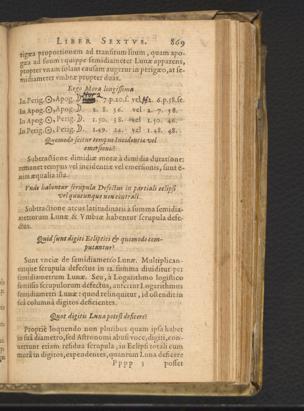 LIBER SEXTVS. 869
rigæa proportionem ad transitum suum, quam apo-
gæa ad suum: quippe semidiameter Lunæ apparens,
propter vnam solam causam augetur in perigæo, at se-
midiameter vmbræ propter duas.
Ergo Mora longissima
In Perig.☉, Apog.
In Perig.☉, Apog. 2. 8. 36. vel 2. 7. 58.
In Apog.☉, Perig. 1. 50. 38. vel 1. 50. 46.
In Apog.☉, Perig. 1. 49. 24. vel 1. 48. 48.
Quomodo scitur tempus Incidentiæ vel
emersionis?
Subtractione dimidiæ moræ à dimidia duratione:
remanet tempus vel incidentiæ vel emersionis, sunt e-
nim æqualia ista.
Vnde habentur scrupula Defectus in partiali eclipsi
vel quacunque non centrali.
Subtractione arcus latitudinarii à summa semidia-
metrorum Lunæ & Vmbræ habentur scrupula defe-
ctus.
Quid sunt digiti Ecliptici & quomodo com-
putantur?
Sunt vnciæ de semidiametro Lunæ. Multiplican-
tumque scrupula defectus in 12. summa diuiditur per
semidiametrum Lunæ. Seu, à Logarithmo logistico
semissis scrupulorum defectus, aufertur Logarithmus
semidiametri Lunæ: quod relinquitur, id ostendit in
sua columna digitos deficientes.
Quot digitis Luna potest deficere?
Propriè loquendo non pluribus quam ipsa habet
in sua diametro, sed Astronomi abusi voce, digiti, con-
uertunt etiam residua scrupula, in Eclipsi totali cum
mora in digitos, expendentes, quantum Luna deficere
Pppp 3 posset